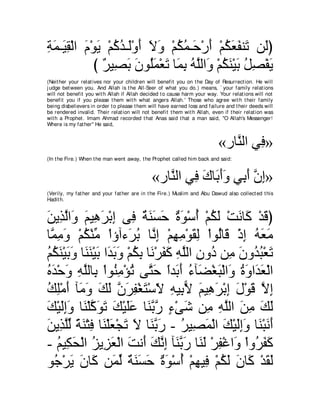 (لَن تَنفَعَكُمْ أَرْحَـمُكُمْ وَلاَ أَوْلَـدُكُمْ يَوْمَ الْقِيَـمَةِ
يَفْصِلُ بَيْنَكُمْ وَاللَّهُ بِمَا تَعْمَلُونَ بَصِيرٌ )
(Neither your relatives nor your children will benefit you on the Day of Resurrection. He will
judge between you. And Allah is the All-Seer of what you do.) means, `your family relations
will not benefit you with Allah if Allah decided to cause harm your way. Your relations will not
benefit you if you please them with what angers Allah.' Those who agree with their family
being disbelievers in order to please them will have earned loss and failure and their deeds will
be rendered invalid. Their relation will not benefit them with Allah, even if their relation was
with a Prophet. Imam Ahmad recorded that Anas said that a man said, "O Allah's Messenger!
Where is my father'' He said,
«فِي النَّارِ»
(In the Fire.) When the man went away, the Prophet called him back and said:
«إِنَّ أَبِي وَأَبَاكَ فِي النَّارِ»
(Verily, my father and your father are in the Fire.) Muslim and Abu Dawud also collected this
Hadith.
(قَدْ كَانَتْ لَكُمْ أُسْوَةٌ حَسَنَةٌ فِى إِبْرَهِيمَ وَالَّذِينَ
مَعَهُ إِذْ قَالُواْ لِقَوْمِهِمْ إِنَّا بُرَءآؤاْ مِّنْكُمْ وَمِمَّا
تَعْبُدُونَ مِن دُونِ اللَّهِ كَفَرْنَا بِكُمْ وَبَدَا بَيْنَنَا وَبَيْنَكُمُ
الْعَدَاوَةُ وَالْبَغْضَآءُ أَبَداً حَتَّى تُؤْمِنُواْ بِاللَّهِ وَحْدَهُ
إِلاَّ قَوْلَ إِبْرَهِيمَ لأَبِيهِ لأَسْتَغْفِرَنَّ لَكَ وَمَآ أَمْلِكُ
لَكَ مِنَ اللَّهِ مِن شَىْءٍ رَّبَّنَا عَلَيْكَ تَوَكَّلْنَا وَإِلَيْكَ
أَنَبْنَا وَإِلَيْكَ الْمَصِيرُ - رَبَّنَا لاَ تَجْعَلْنَا فِتْنَةً لِّلَّذِينَ
كَفَرُواْ وَاغْفِرْ لَنَا رَبَّنَآ إِنَّكَ أَنتَ الْعَزِيزُ الْحَكِيمُ -
لَقَدْ كَانَ لَكُمْ فِيهِمْ أُسْوَةٌ حَسَنَةٌ لِّمَن كَانَ يَرْجُو